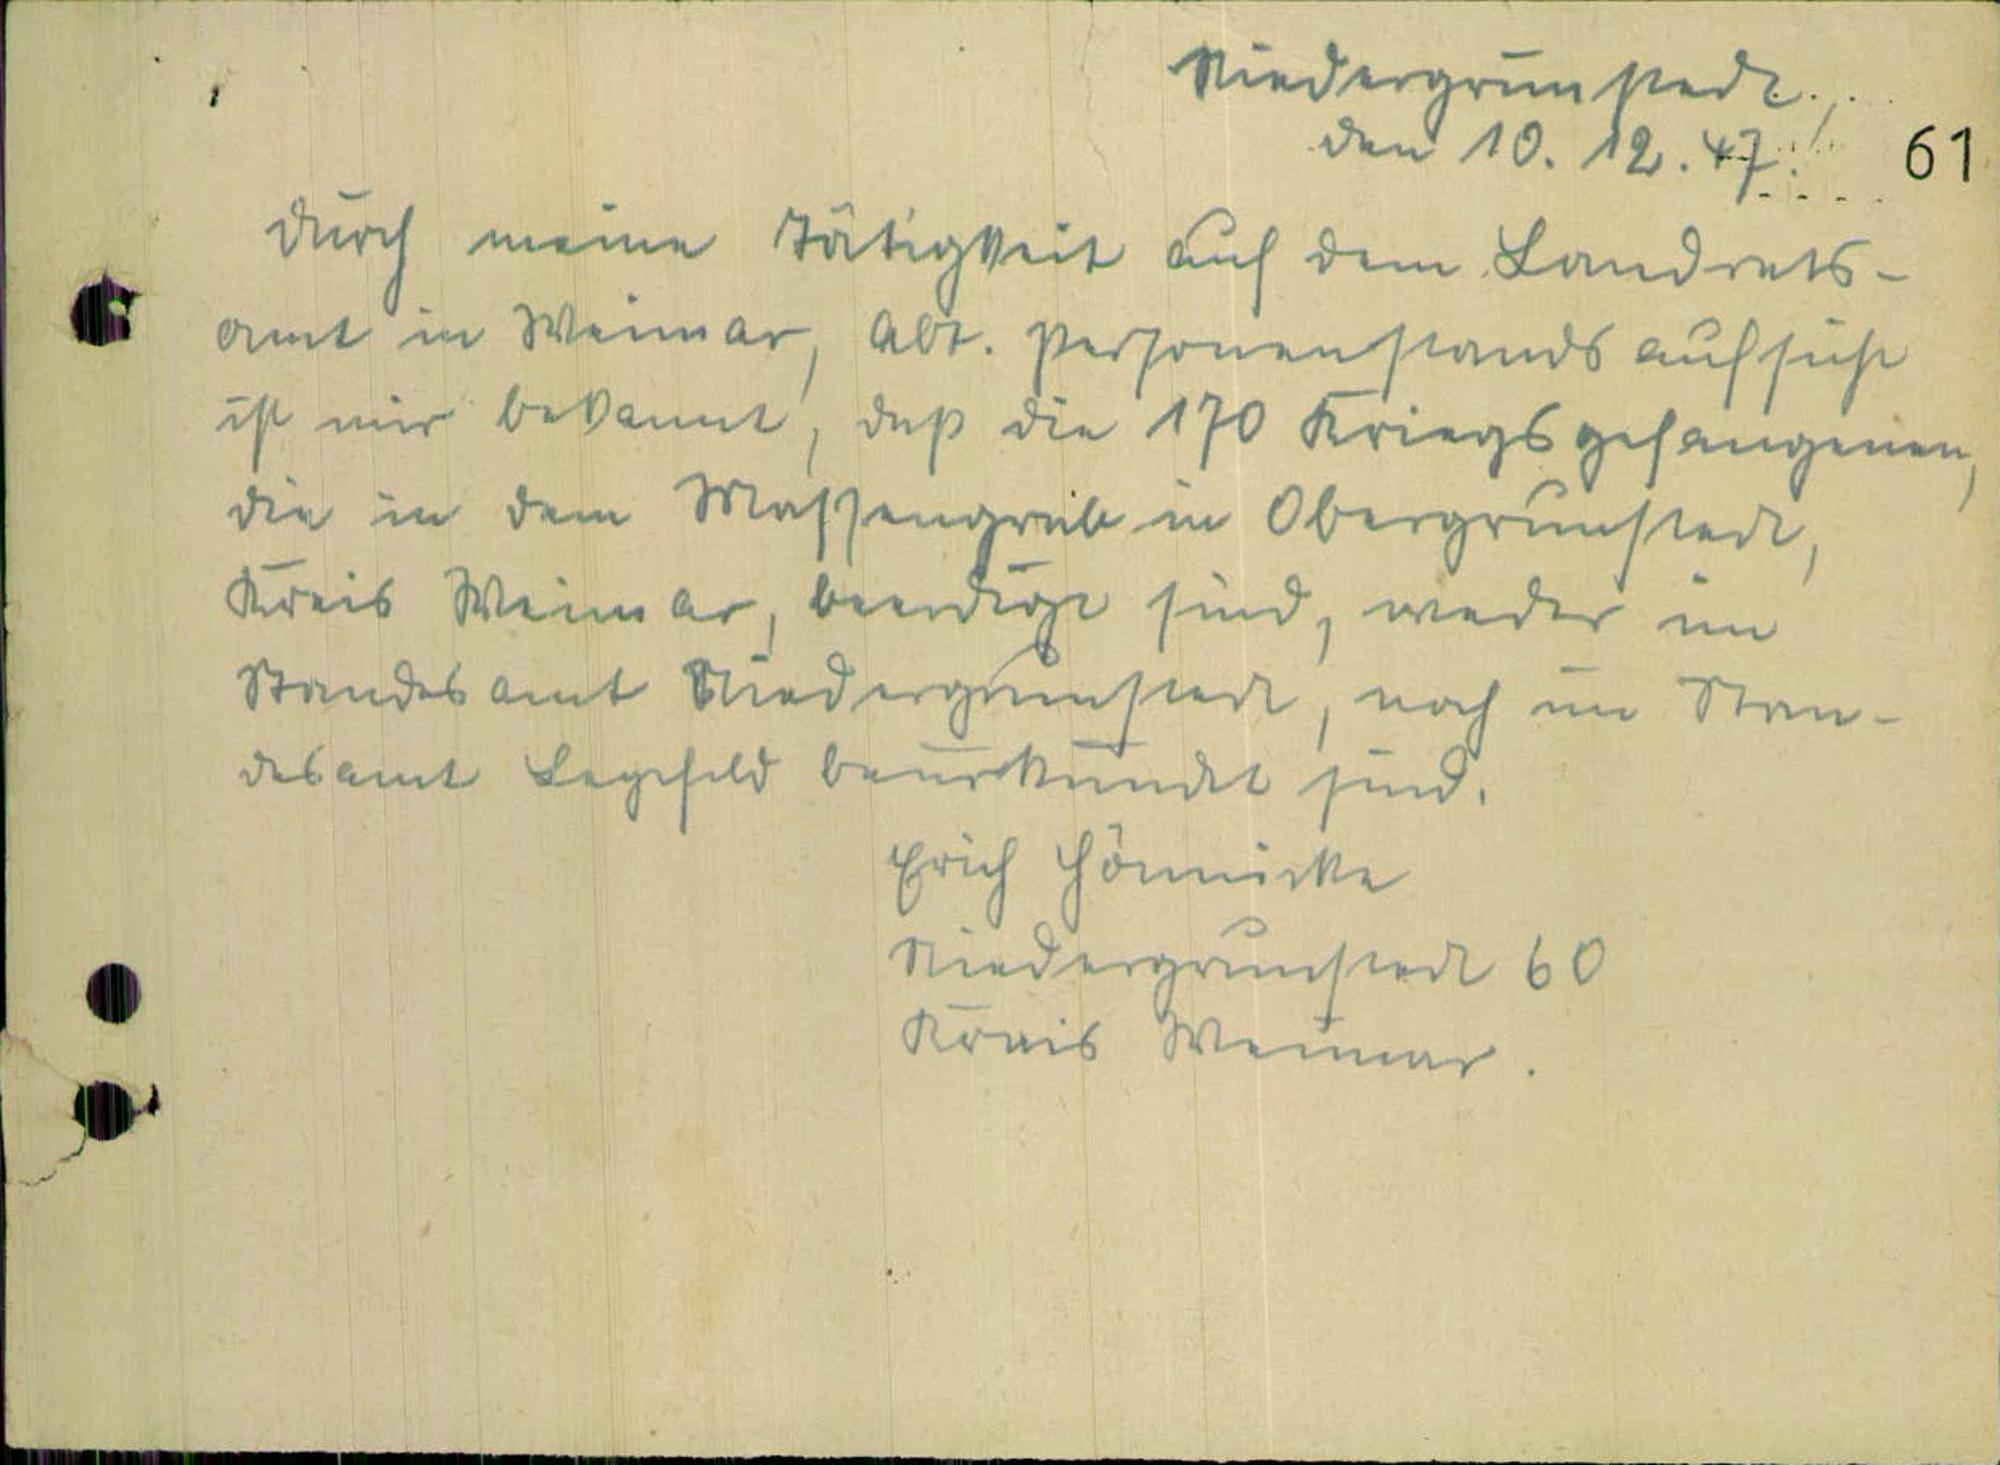 Niedergrunstedt,
den 10. 12. 47.
61
Durch meine Tätigkeit auf dem Landrats-
amt in Weimar, Abt. Personenstandsaufsicht
ist mir bekannt, daß die 170 Kriegsgefangenen,
die in dem Massengrab in Obergrunstedt,
Kreis Weimar, beerdigt sind, weder im
Standesamt Niedergrunstedt, noch im Stan-
desamt Legefeld beurkundet sind.
Erich Hönnicke
Niedergrunstedt 60
Kreis Weimar.